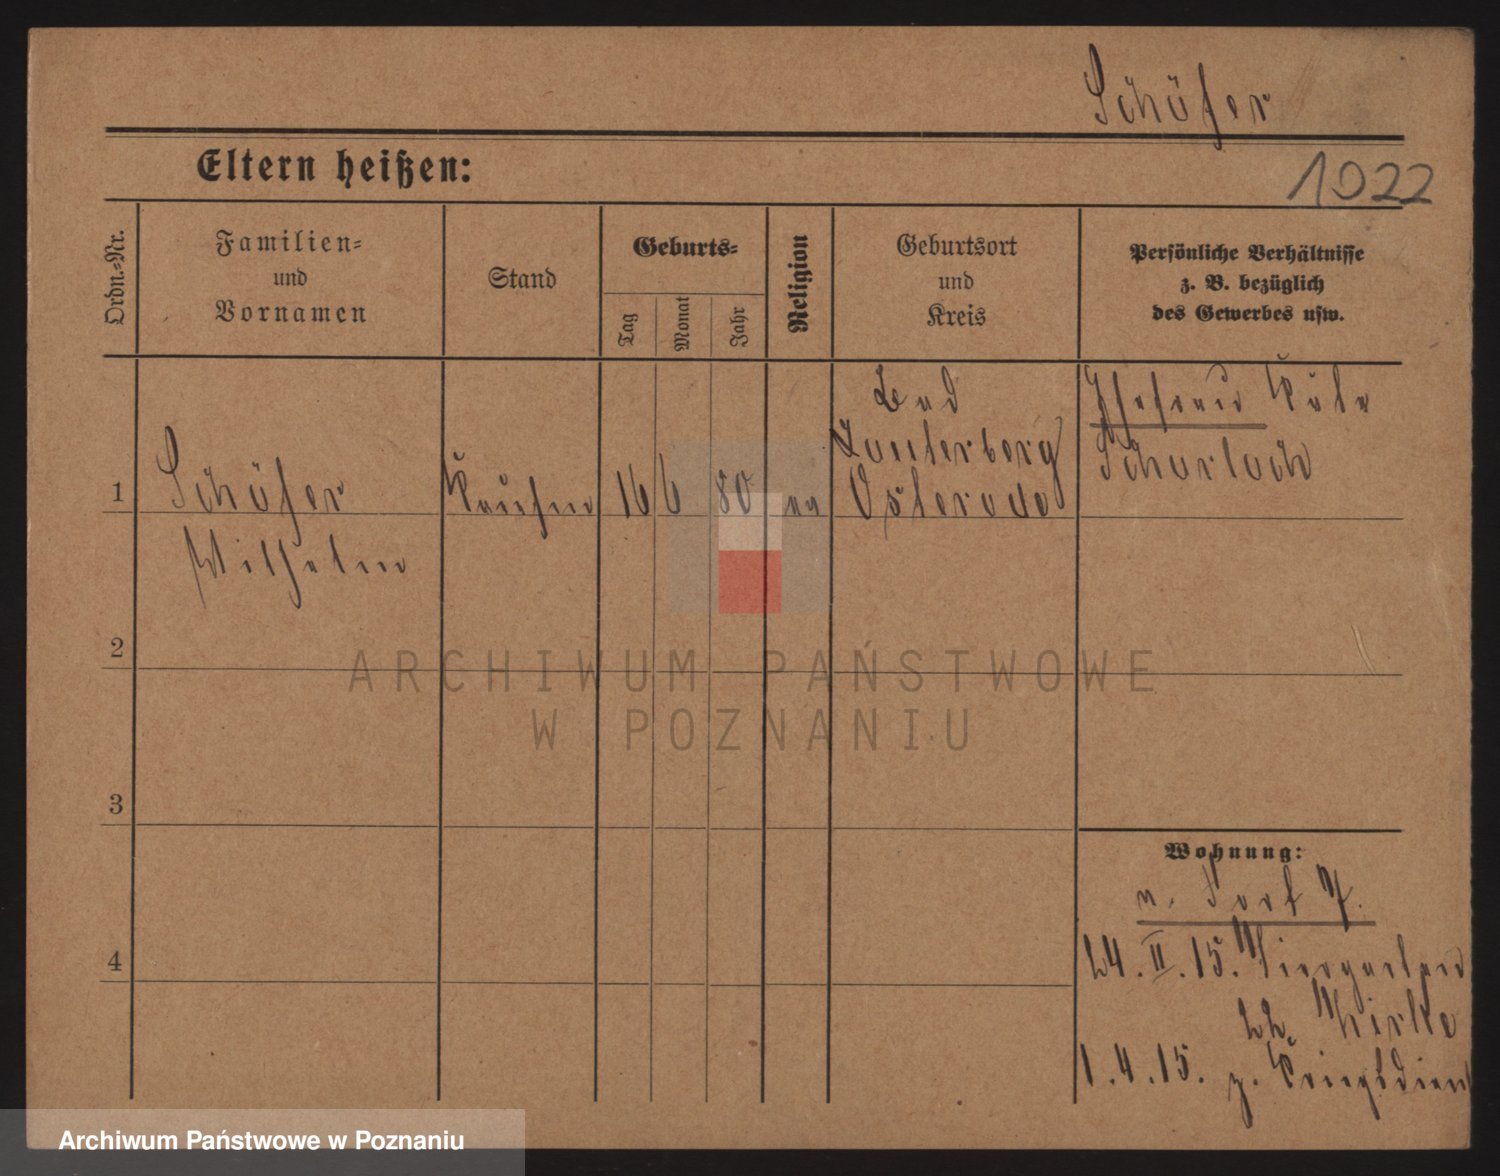 Schäfer
Eltern heißen:
1022
Ordn.=Nr.
Familien=
und
Vornamen
Stand
Geburts=
Tag
Monat
Jahr
Religion
Geburtsort
und
Kreis
Persönliche Verhältnisse
z. B. bezüglich
des Gewerbes usw.
1
Schäfer
Wilhelm
Kaufm
16
6
80
ev
Bad
Lauterberg
Osterode
Ehefrau
Scharloch
2
3
4
Wohnung:
24. II. 15. Tiergarten
1.4.15. z. Kriegsdienst
ARCHIWUM PAŃSTWOWE
W POZNANIU
Archiwum Państwowe w Poznaniu